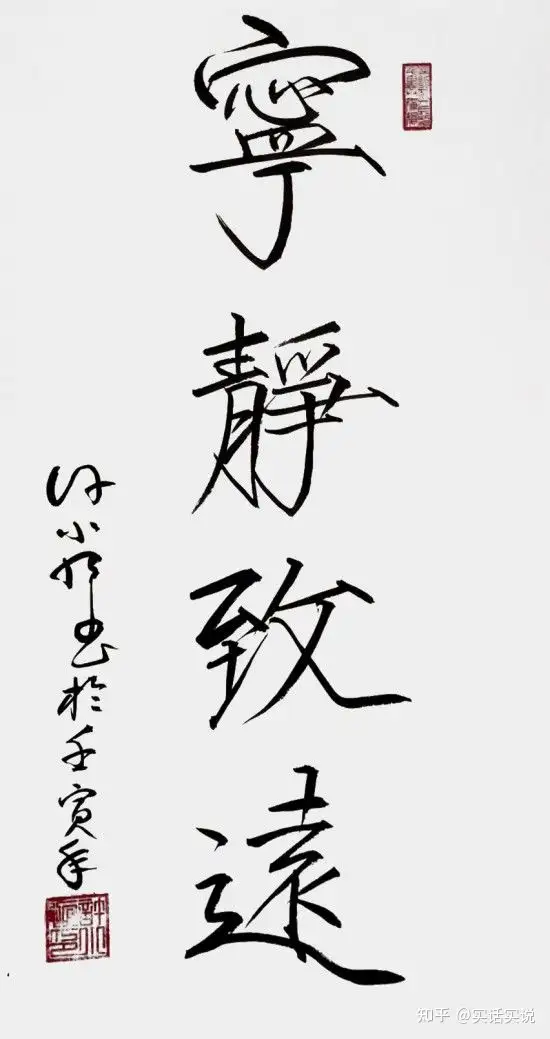 寧靜致遠
许小书於壬寅年
知乎 @实话实说